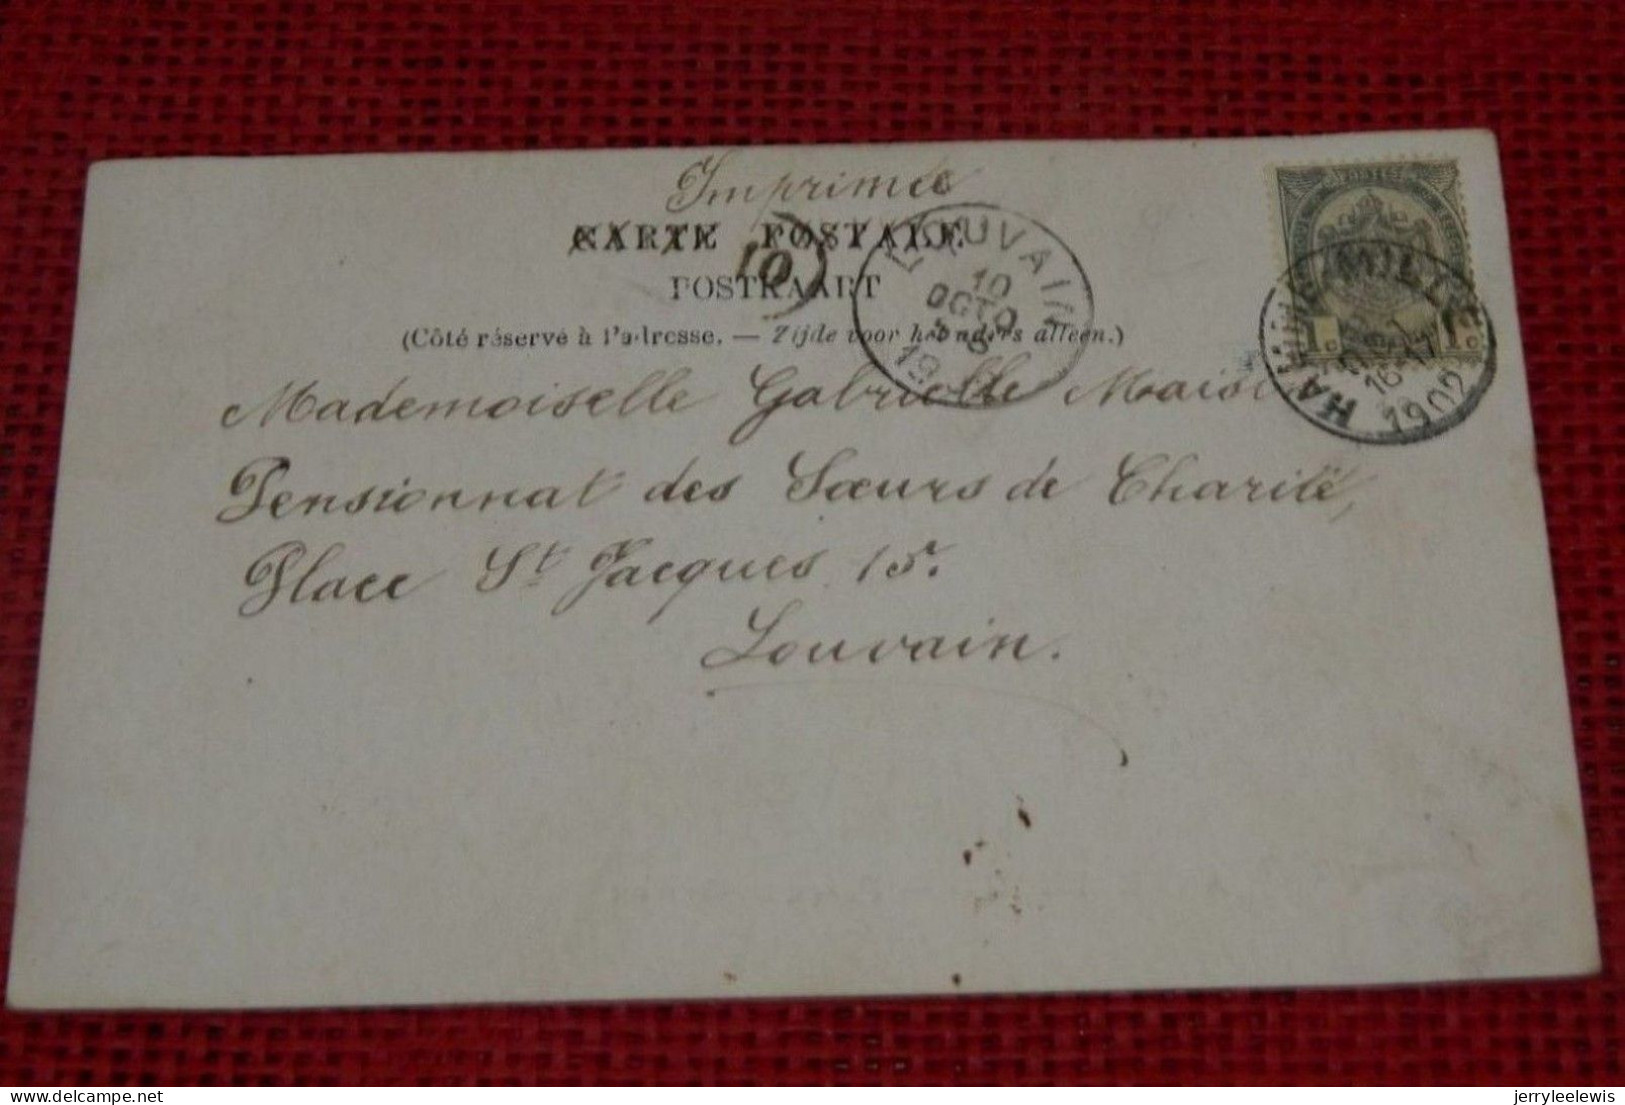 Imprimée
CARTE POSTALE
10
POSTKAART
(Côté réservé à l'adresse. — Zijde voor het adres alleen.)
LOUVAIN
10
OCTO
19
POSTES
HAMME-MILLE
16-17
1902
1c 1c
Mademoiselle Gabrielle
Pensionnat des Sœurs de Charité,
Place St Jacques 15.
Louvain.
delcampe.net
jerryleelewis